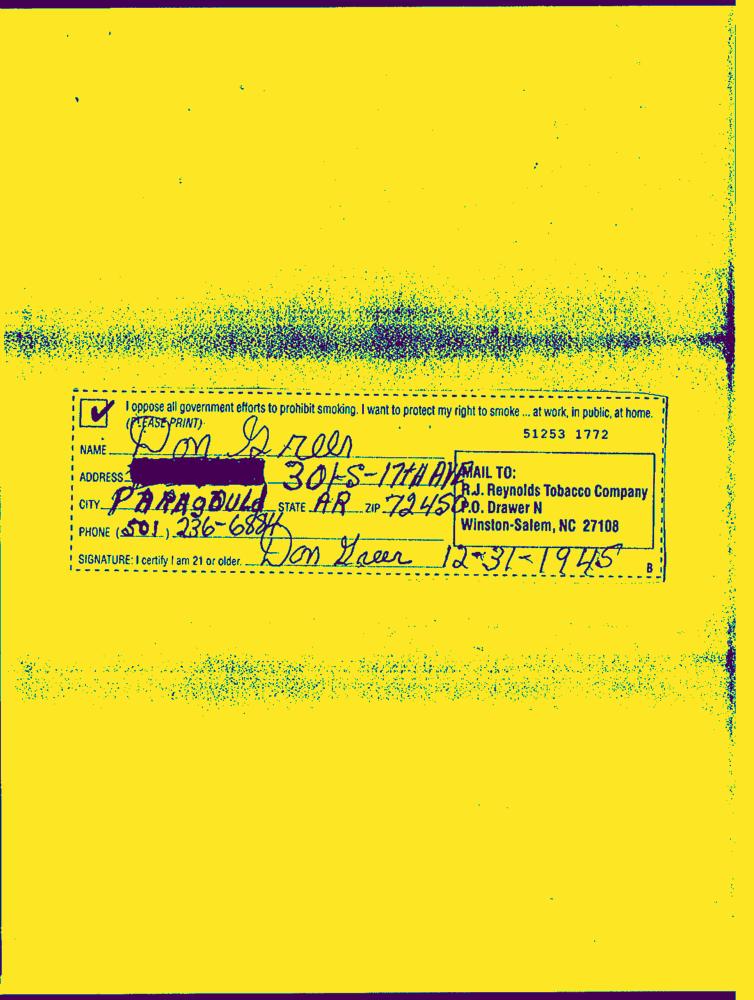 I oppose all government efforts to prohibit smoking. I want to protect my right to smoke ... at work, in public, at home.
(PLEASE PRINT)
51253 1772
NAME Don Green
ADDRESS 301-S-17th AVE
CITY PARAgOULd STATE AR ZIP 72450
PHONE (501) 236-6884
SIGNATURE: I certify I am 21 or older. Don Green 12-31-1945
MAIL TO:
R.J. Reynolds Tobacco Company
P.O. Drawer N
Winston-Salem, NC 27108
B